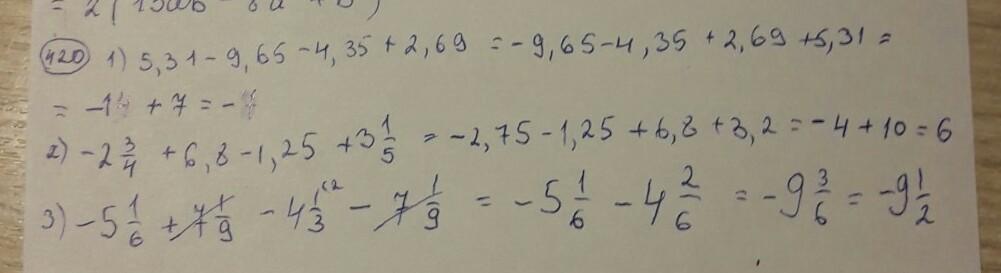 = 2(15ab - 8a + b)
420 1) 5,31 - 9,65 - 4,35 + 2,69 = -9,65 - 4,35 + 2,69 + 5,31 =
= -14 + 7 = -7
2) -2 3/4 + 6,8 - 1,25 + 3 1/5 = -2,75 - 1,25 + 6,8 + 3,2 = -4 + 10 = 6
3) -5 1/6 + 7 1/9 - 4 1/3 (2 - 7 1/9 = -5 1/6 - 4 2/6 = -9 3/6 = -9 1/2